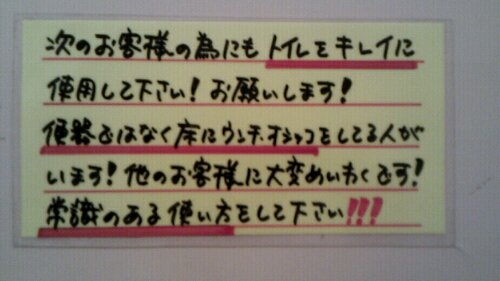 次のお客様の為にもトイレをキレイに
使用して下さい！お願いします！
便器ではなく床にウンチ・オシッコをしてる人が
います！他のお客様に大変めいわくです！
常識のある使い方をして下さい!!!